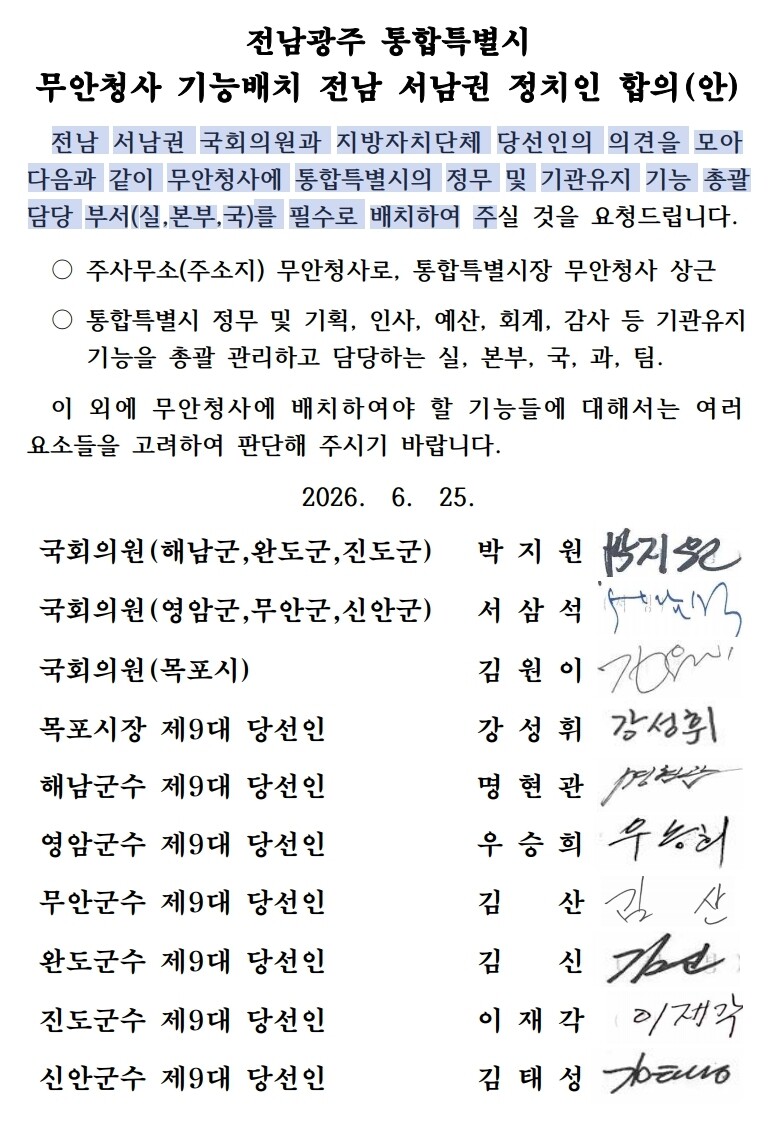 전남광주 통합특별시
무안청사 기능배치 전남 서남권 정치인 합의(안)
전남 서남권 국회의원과 지방자치단체 당선인의 의견을 모아
다음과 같이 무안청사에 통합특별시의 정무 및 기관유지 기능 총괄
담당 부서(실,본부,국)를 필수로 배치하여 주실 것을 요청드립니다.
○ 주사무소(주소지) 무안청사로, 통합특별시장 무안청사 상근
○ 통합특별시 정무 및 기획, 인사, 예산, 회계, 감사 등 기관유지
기능을 총괄 관리하고 담당하는 실, 본부, 국, 과, 팀.
이 외에 무안청사에 배치하여야 할 기능들에 대해서는 여러
요소들을 고려하여 판단해 주시기 바랍니다.
2026. 6. 25.
국회의원(해남군,완도군,진도군) 박 지 원 박지원
국회의원(영암군,무안군,신안군) 서 삼 석
국회의원(목포시) 김 원 이 김원이
목포시장 제9대 당선인 강 성 휘 강성휘
해남군수 제9대 당선인 명 현 관 명현관
영암군수 제9대 당선인 우 승 희 우승희
무안군수 제9대 당선인 김 산 김 산
완도군수 제9대 당선인 김 신 김신
진도군수 제9대 당선인 이 재 각 이재각
신안군수 제9대 당선인 김 태 성 김태성